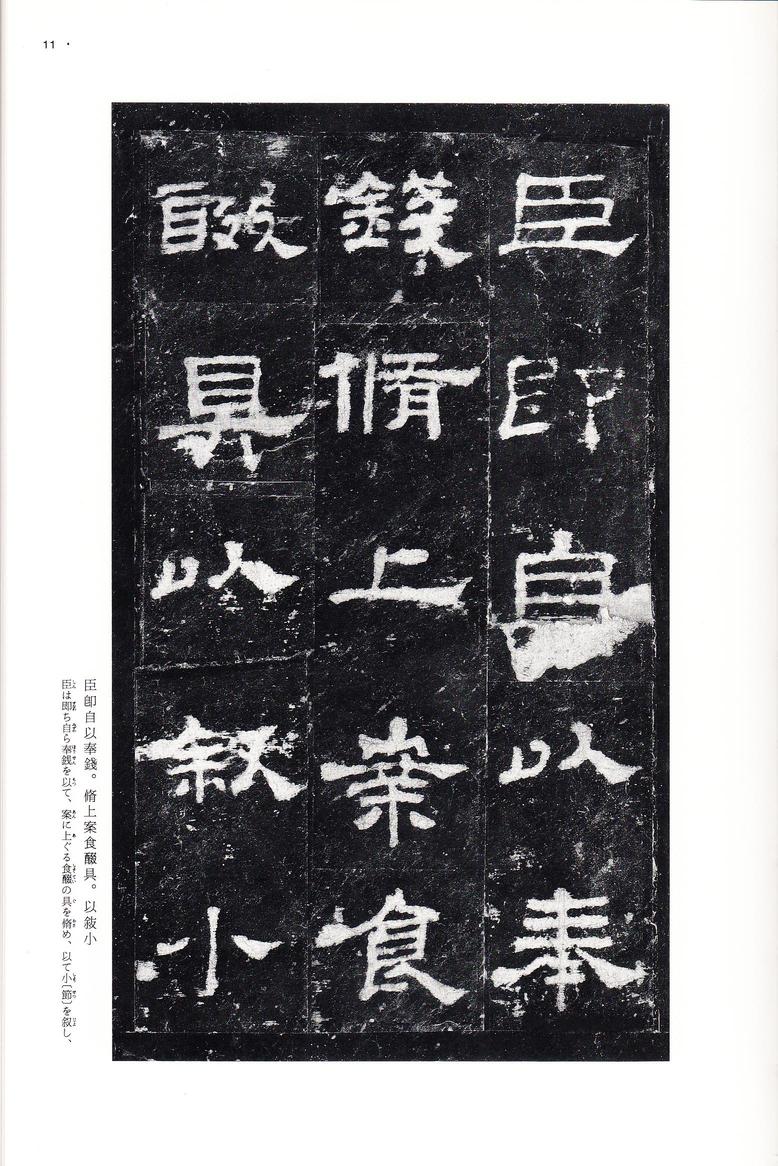 11 ·
臣即自以奉
錢脩上案食
醊具以叙小
臣卽自以奉錢。脩上案食醊具。以敍小
臣は即ち自ら奉銭を以て、案に上ぐる食醊の具を脩め、以て小〔節〕を叙し、